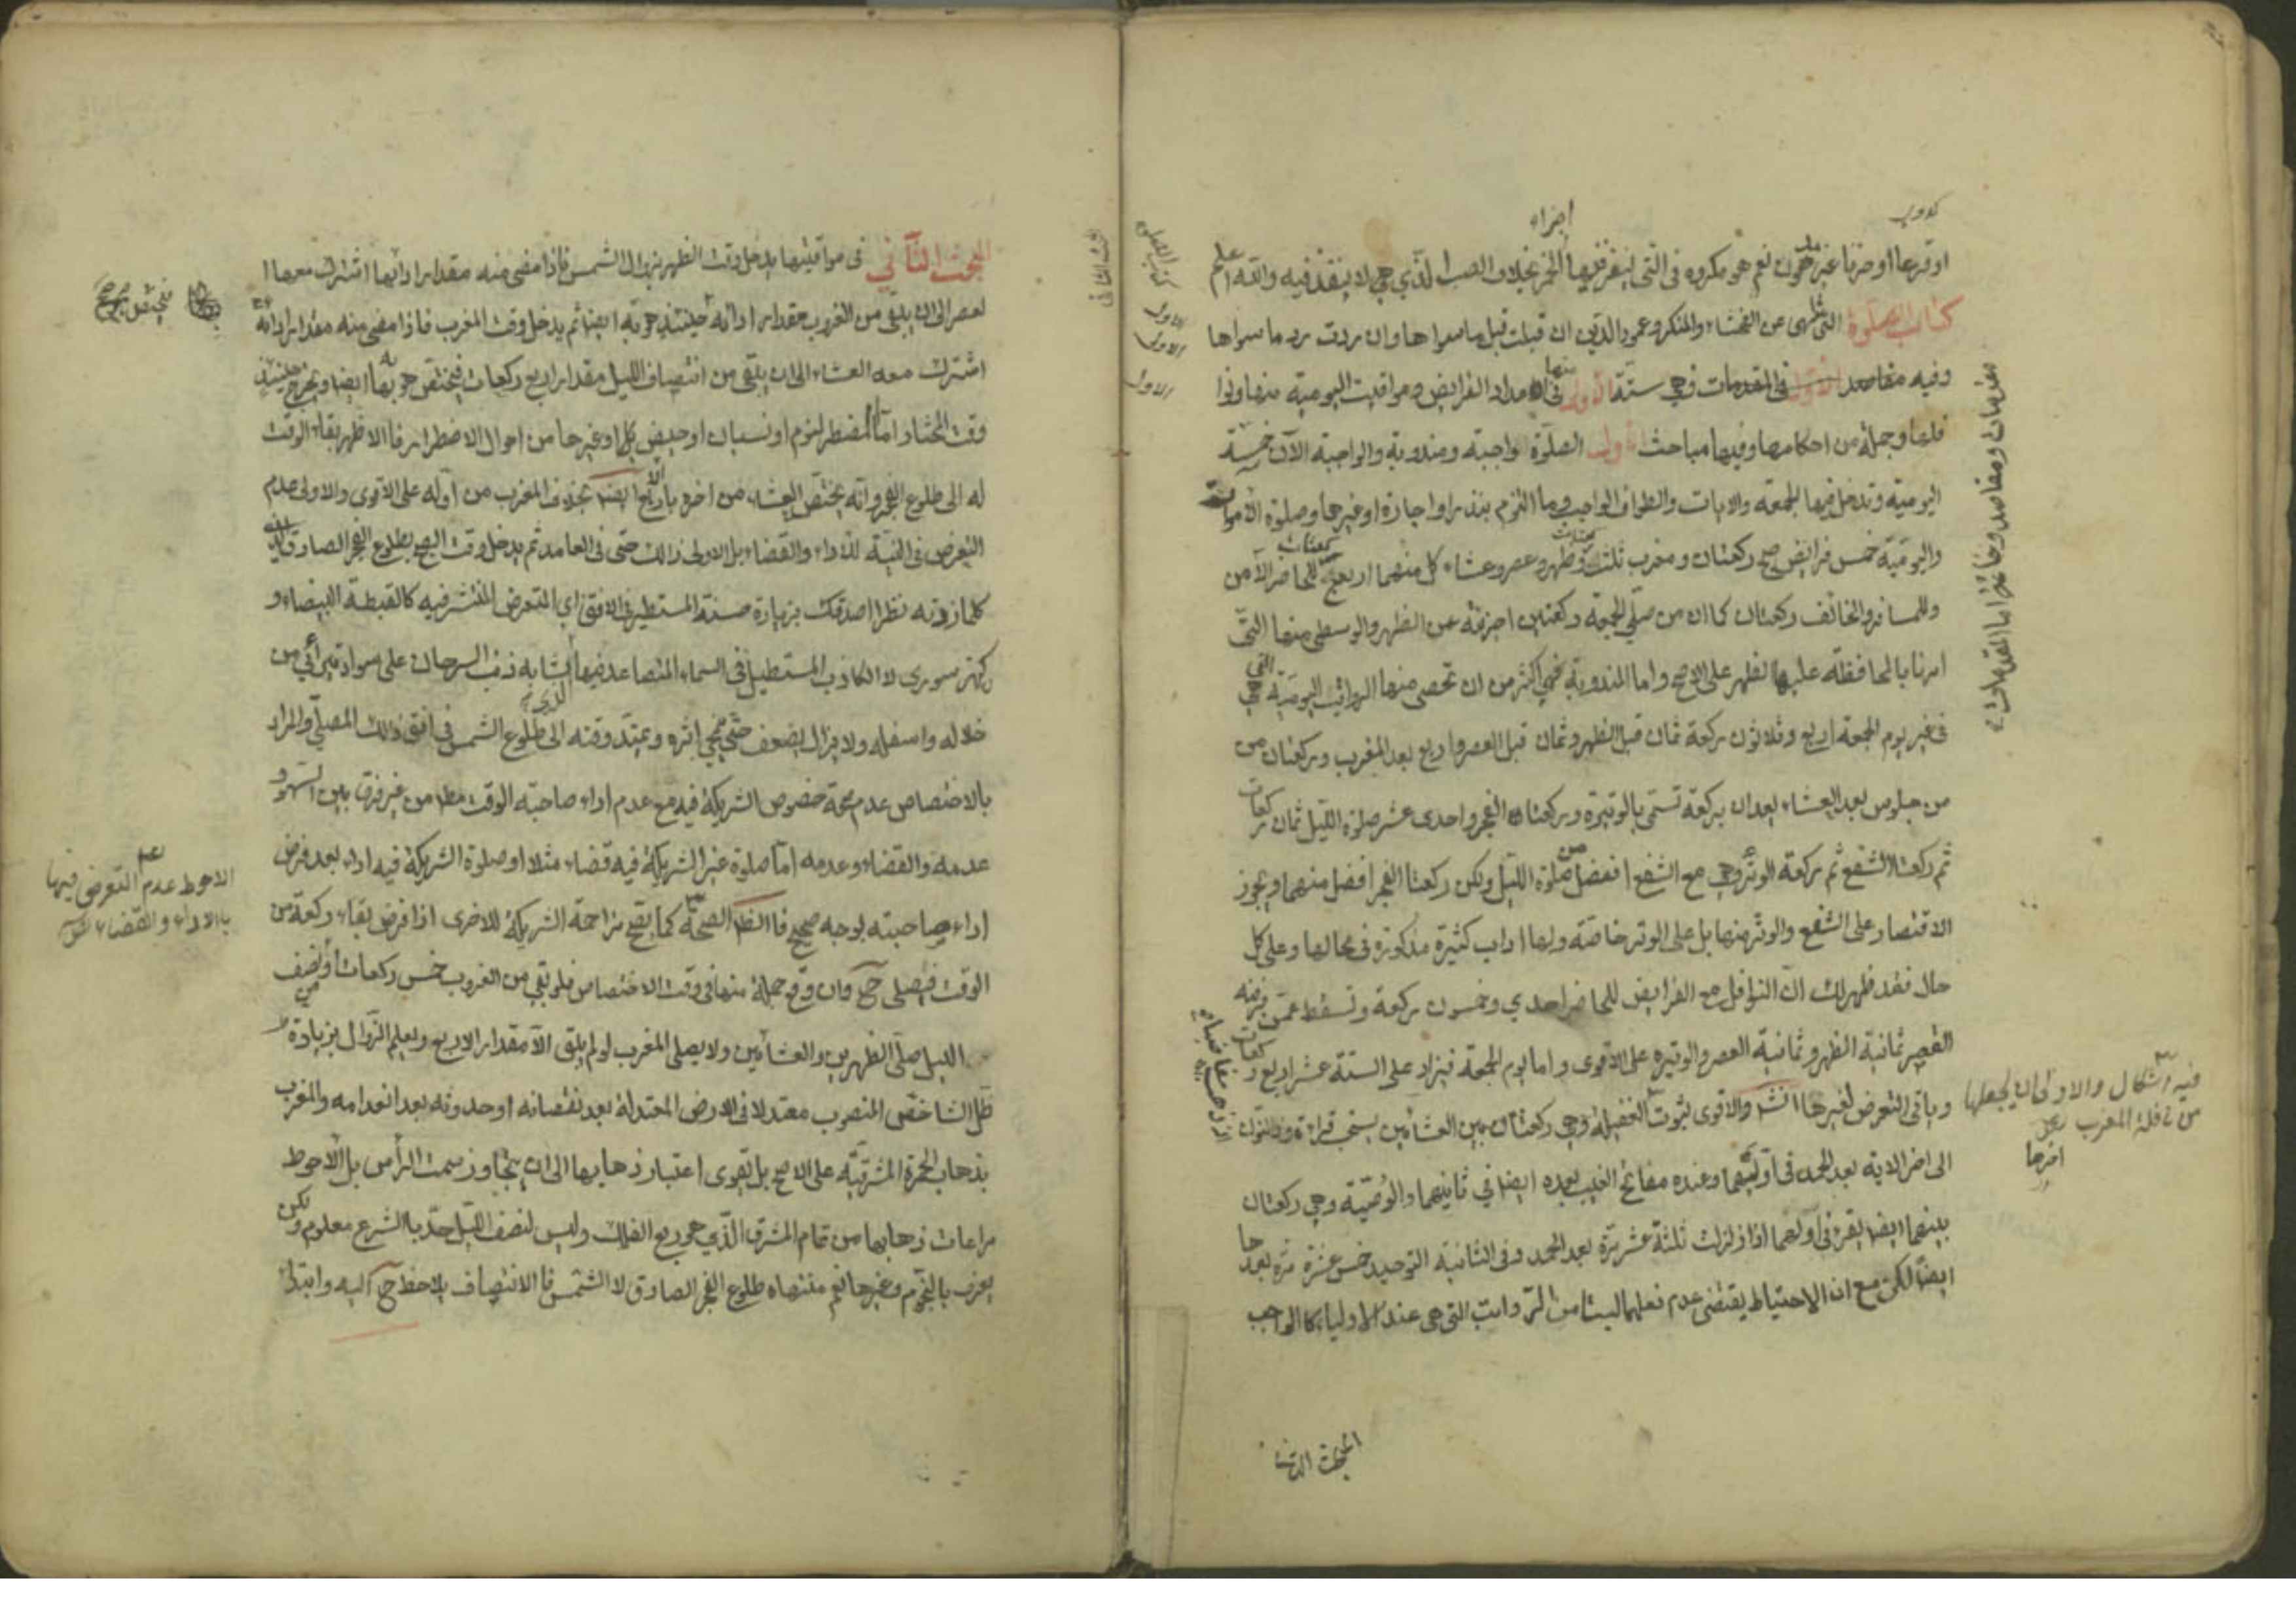 اوقرعا او خزفا غير مدهون نعم هو مكروه في التي ينفذ فيها اجزاء الخمر بخلاف الصلب الذي هي لا ينفذ فيه والله اعلم
كتاب الصلوة التي تنهى عن الفحشاء والمنكر وعمود الدين ان قبلت قبل ما سواها وان ردت رد ما سواها
وفيه مقاصد الاول في المقدمات وهي ستة الاولى منها في اعداد الفرايض ومواقيت اليومية منها ونوا
فلها وجملة من احكامها وفيها مباحث الاول الصلوة واجبة ومندوبة والواجبة الآن خمسة
اليومية وتدخل فيها الجمعة والايات والطواف الواجب وما التزم بنذر او اجارة او غيرها وصلوة الاموات
واليومية خمس فرايض صبح ركعتان ومغرب ثلث ركعات وظهر وعصر وعشاء كل منهما اربع للحاضر الآمن
وللمسافر والخائف ركعتان كما ان من صلى الجمعة ركعتين اجزئه عن الظهر والوسطى منها التي
امرنا بالمحافظة عليها الظهر على الاصح واما المندوبة فهي اكثر من ان تحصى منها الرواتب اليومية التي هي
في غير يوم الجمعة اربع وثلاثون ركعة ثمان قبل الظهر وثمان قبل العصر واربع بعد المغرب وركعتان من
من جلوس بعد العشاء يعدان بركعة تسمى بالوتيرة وركعتان الفجر واحدى عشر صلوة الليل ثمان ركعات
ثم ركعتا الشفع ثم ركعة الوتر وهي مع الشفع افضل من صلوة الليل ولكن ركعتا الفجر افضل منهما ويجوز
الاقتصار على الشفع والوتر منها بل على الوتر خاصة ولها اداب كثيرة مذكورة في محالها وعلى كل
حال فقد ظهر لك ان النوافل مع الفرايض للحاضر احدي وخمسون ركعة وتسقط عمن فرضه
القصر ثمانية الظهر وثمانية العصر والوتيره على الاقوى واما يوم الجمعة فيزاد على الستة عشر اربع ركعات
وياتي التعرض لغيرها انش والاقوى ثبوت الغفيلة وهي ركعتان بين العشائين يستحب قراءة وذا النون
الى اخر الاية بعد الحمد في اوليهما وعنده مفاتح الغيب بعده ايضا في ثانيهما والوصية وهي ركعتان
بينهما ايضا يقرء في اولهما اذا زلزلت ثلثة عشر مرة بعد الحمد وفي الثانية التوحيد خمس عشرة مرة بعدها
ايضا لكن مع ان الاحتياط يقتضي عدم فعلهما ليستا من الرواتب التي هي عند الاولياء كالواجب
مقدمات ومقاصد وخاتمة اما المقدمات
كتاب الصلوة
الاول
الاول
الاول
فيه اشكال والاولى ان يجعلها
من نافلة المغرب
المبحث الثاني
المبحث الثاني في مواقيتها يدخل وقت الظهر بزوال الشمس فاذا مضى منه مقدار ادائها اشترك معها ا
لعصر الى ان يبقى من الغروب مقدار ادائه فيختص حينئذ هو به ايضا ثم يدخل وقت المغرب فاذا مضى منه مقدار ادائه
اشترك معه العشاء الى ان يبقى من انتصاف الليل مقدار اربع ركعات فيختص هو بها ايضا ويخرج حينئذ
وقت المختار اما المضطر لنوم او نسيان او حيض بل او غيرها من احوال الاضطرار فالاظهر بقاء الوقت
له الى طلوع الفجر وانه يختص العشاء من اخره بالاربع ايضا بخلاف المغرب من اوله على الاقوى والاولى عدم
التعرض في النية للاداء والقضاء بل الاولى ذلك حتى في العامد ثم يدخل وقت الصبح بطلوع الفجر الصادق الذي
كلما زدته نظرا اصدقك بزيادة حسنه المستطير في الافق اي المتعرض المنتشر فيه كالقبطية البيضاء و
كنهر سورى لا الكاذب المستطيل في السماء المتصاعد فيها الذي يشابه ذنب السرحان على سواد يتراءى من
خلاله واسفله ولا يزال يضعف حتى ينمحي اثره ويمتد وقته الى طلوع الشمس في افق ذلك المصلي والمراد
بالاختصاص عدم صحة خصوص الشريكة فيه مع عدم اداء صاحبة الوقت مطلقا من غير فرق بين السهو و
عدمه والقضاء وعدمه اما صلوة غير الشريكة فيه قضاء مثلا او صلوة الشريكة فيه اداء بعد فرض
اداء صاحبته بوجه صحيح فالظ الصحة كما يصح مزاحمة الشريكة للاخرى اذا فرض بقاء ركعة من
الوقت فيصلي ح وان وقع جملة منها في وقت الاختصاص فلو بقي من الغروب خمس ركعات او نصف
الليل صلى الظهرين والعشائين ولا يصلى المغرب لو لم يبق الا مقدار الاربع ويعلم الزوال بزيادة
ظل الشاخص المنصوب معتدلا في الارض المعتدلة بعد نقصانه او حدوثه بعد انعدامه والمغرب
بذهاب الحمرة المشرقية على الاصح بل يقوى اعتبار ذهابها الى ان يتجاوز سمت الراس بل الاحوط
مراعات ذهابها من تمام المشرق الذي هو ربع الفلك وليس لنصف الليل حد بالشرع معلوم ولكن
يعرف بالنجوم وغيرها نعم منتهاه طلوع الفجر الصادق لا الشمس فالانتصاف يلاحظ ح اليه وابتداء
الاحوط عدم التعرض فيها
بالاداء والقضاء